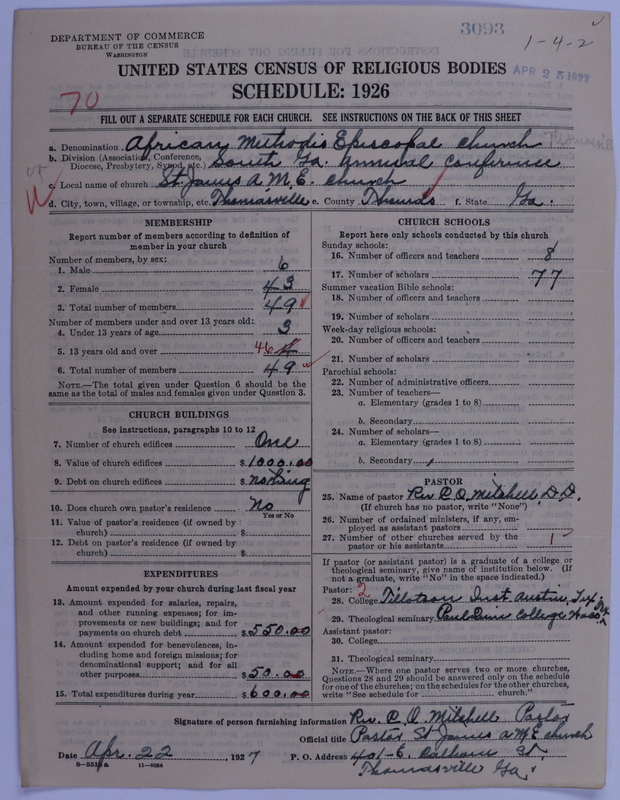 3093
1-4-2
DEPARTMENT OF COMMERCE
BUREAU OF THE CENSUS
WASHINGTON
UNITED STATES CENSUS OF RELIGIOUS BODIES
APR 25 1927
SCHEDULE: 1926
70
FILL OUT A SEPARATE SCHEDULE FOR EACH CHURCH. SEE INSTRUCTIONS ON THE BACK OF THIS SHEET
a. Denomination African Methodis Episcopal church
Thomasville
b. Division (Association, Conference, Diocese, Presbytery, Synod, etc.) South Ga. Annual Conference
c. Local name of church St. James A. M. E. church
d. City, town, village, or township, etc. Thomasville e. County Thomas f. State Ga.
MEMBERSHIP
Report number of members according to definition of
member in your church
Number of members, by sex:
1. Male 6
2. Female 43
3. Total number of members 49
Number of members under and over 13 years old:
4. Under 13 years of age 3
5. 13 years old and over 46
6. Total number of members 49
NOTE.—The total given under Question 6 should be the
same as the total of males and females given under Question 3.
CHURCH BUILDINGS
See instructions, paragraphs 10 to 12
7. Number of church edifices One
8. Value of church edifices $1000.00
9. Debt on church edifices $ nothing
10. Does church own pastor's residence No
Yes or No
11. Value of pastor's residence (if owned by
church) $
12. Debt on pastor's residence (if owned by
church) $
EXPENDITURES
Amount expended by your church during last fiscal year
13. Amount expended for salaries, repairs,
and other running expenses; for im-
provements or new buildings; and for
payments on church debt $550.00
14. Amount expended for benevolences, in-
cluding home and foreign missions; for
denominational support; and for all
other purposes $50.00
15. Total expenditures during year $600.00
CHURCH SCHOOLS
Report here only schools conducted by this church
Sunday schools:
16. Number of officers and teachers 8
17. Number of scholars 77
Summer vacation Bible schools:
18. Number of officers and teachers
19. Number of scholars
Week-day religious schools:
20. Number of officers and teachers
21. Number of scholars
Parochial schools:
22. Number of administrative officers
23. Number of teachers—
a. Elementary (grades 1 to 8)
b. Secondary
24. Number of scholars—
a. Elementary (grades 1 to 8)
b. Secondary
PASTOR
25. Name of pastor Rev. C. O. Mitchell, D. D.
(If church has no pastor, write "None")
26. Number of ordained ministers, if any, em-
ployed as assistant pastors
27. Number of other churches served by the
pastor or his assistants 1
If pastor (or assistant pastor) is a graduate of a college or
theological seminary, give name of institution below. (If
not a graduate, write "No" in the space indicated.)
Pastor: 2
28. College Tillotson Inst. Austin, Tex
29. Theological seminary Paul Quin College Waco, Tex
Assistant pastor:
30. College
31. Theological seminary
NOTE.—Where one pastor serves two or more churches,
Questions 28 and 29 should be answered only on the schedule
for one of the churches; on the schedules for the other churches,
write "See schedule for church."
Signature of person furnishing information Rev. C. O. Mitchell Pastor
Official title Pastor St James A M E church
Date Apr. 22, 1927 P. O. Address 401-E. Calhoun St,
8-5518a 11-9984
Thomasville Ga.